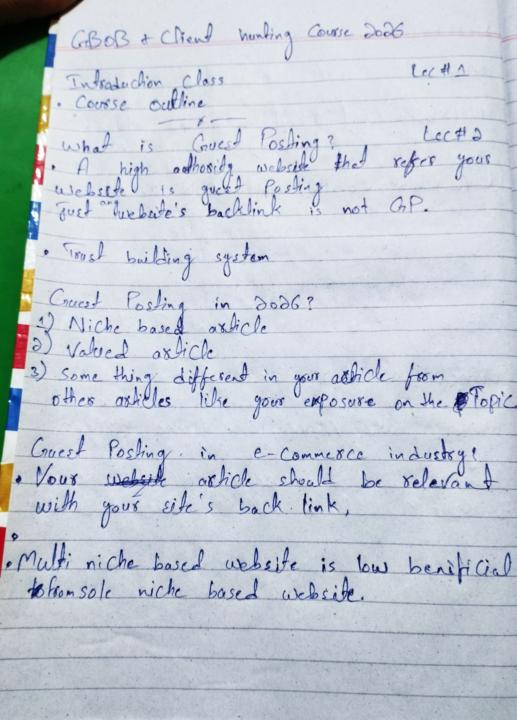 GBOB & Client hunting Course 2026
Introduction Class Lec # 1
• Course outline
What is Guest Posting? Lec# 2
• A high authority website that refer your
website is guest Posting
Just an website's backlink is not GP.
• Trust building system
Guest Posting in 2026?
1) Niche based article
2) Valued article
3) Some thing different in your article from
other articles like your exposure on the Topic
Guest Posting in e-commerce industry!
• Your website article should be relevant
with your site's back link,
• Multi niche based website is low benificial
from sole niche based website.